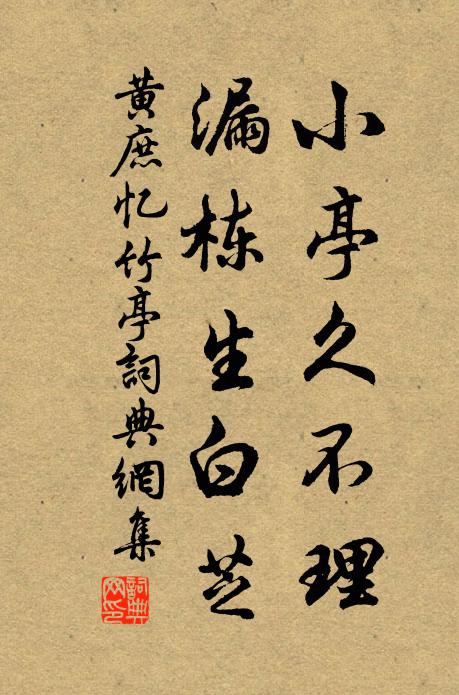 小亭久不理
漏栋生白芝
黄庶忆竹亭詞典網集
詞典网印